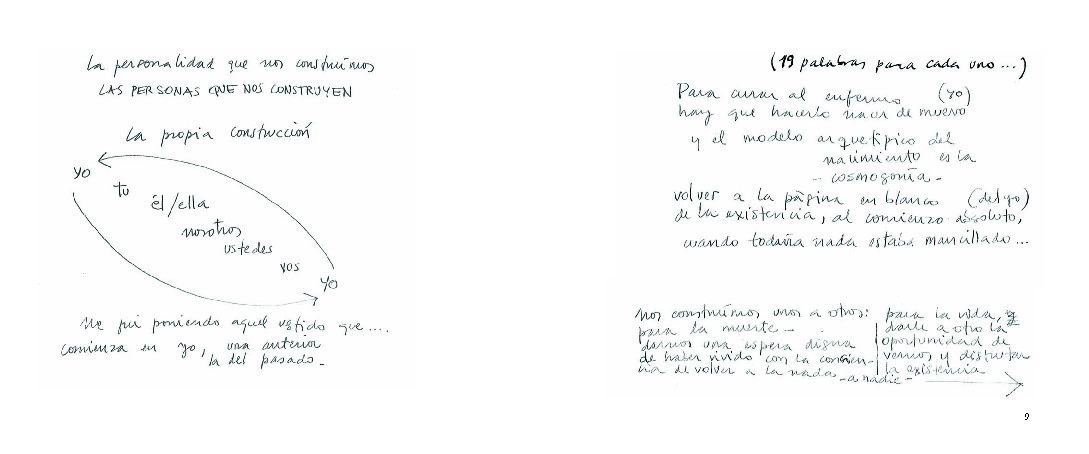 La personalidad que nos construimos
LAS PERSONAS QUE NOS CONSTRUYEN
La propia construcción
yo
tu
él/ella
nosotros
ustedes
vos
yo
Me fui poniendo aquel vestido que....
comienza en yo, una anterior
la del pasado.-
(19 palabras para cada uno...)
Para curar al enfermo (yo)
hay que hacerlo nacer de nuevo
y el modelo arquetípico del
nacimiento es la
- cosmogonía -
volver a la página en blanco (del yo)
de la existencia, al comienzo absoluto,
cuando todavía nada estaba mancillado...
Nos construimos unos a otros:
para la muerte -
darnos una espera digna
de haber vivido con la concien-
cia de volver a la nada - a nadie -
para la vida, y
darle a otro la
oportunidad de
vernos y disfrutar
la existencia
9